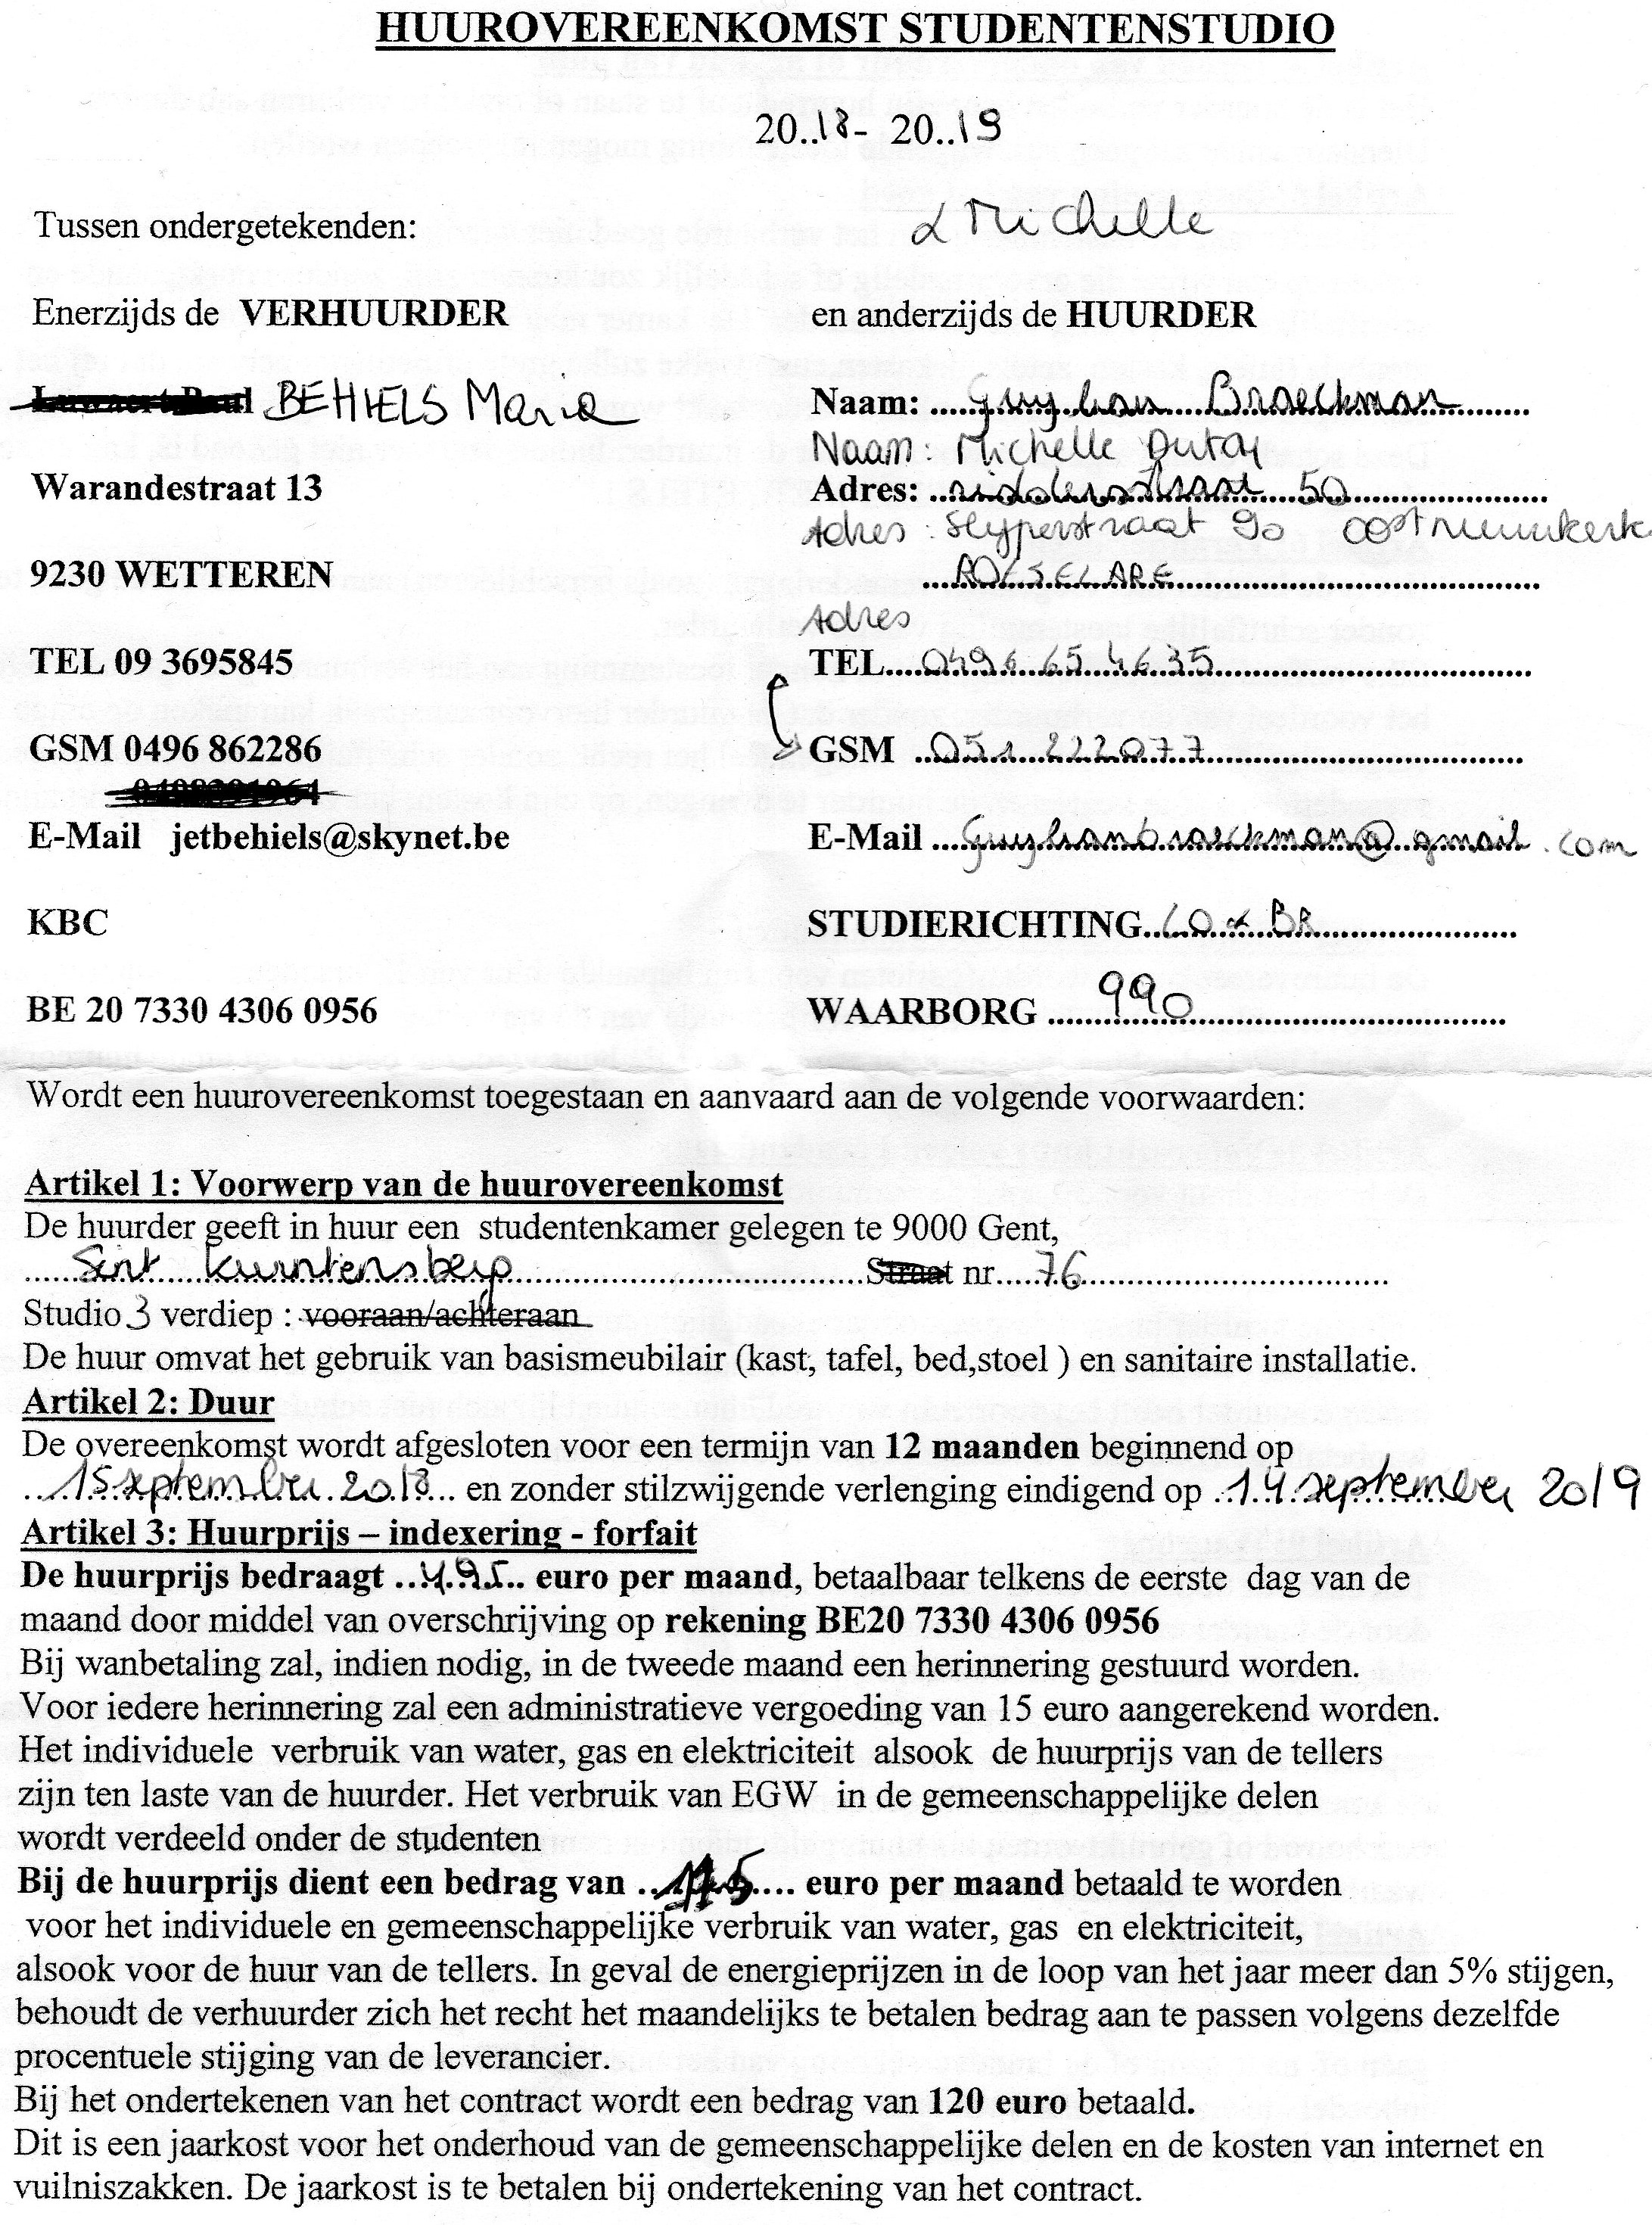 HUUROVEREENKOMST STUDENTENSTUDIO
20..18- 20..19
Tussen ondergetekenden:
& Michelle
Enerzijds de VERHUURDER
en anderzijds de HUURDER
BEHIELS Maria
Naam: Guylian Braeckman
Naam: Michelle
Warandestraat 13
Adres: ridderstraat 50
Adres: Slyperstraat 90 oostnieuwkerke
9230 WETTEREN
ROESELARE
Adres
TEL 09 3695845
TEL....0496 65 46 35
GSM 0496 862286
GSM ..051 222077
0498391964
E-Mail jetbehiels@skynet.be
E-Mail ...Guylianbraeckman@gmail.com
KBC
STUDIERICHTING...LO & BR
BE 20 7330 4306 0956
WAARBORG ......990
Wordt een huurovereenkomst toegestaan en aanvaard aan de volgende voorwaarden:
Artikel 1: Voorwerp van de huurovereenkomst
De huurder geeft in huur een studentenkamer gelegen te 9000 Gent,
Sint Kwintensberg Straat nr.....76
Studio 3 verdiep : vooraan/achteraan
De huur omvat het gebruik van basismeubilair (kast, tafel, bed,stoel ) en sanitaire installatie.
Artikel 2: Duur
De overeenkomst wordt afgesloten voor een termijn van 12 maanden beginnend op
...15 september 2018... en zonder stilzwijgende verlenging eindigend op ..14 september 2019
Artikel 3: Huurprijs – indexering - forfait
De huurprijs bedraagt ..495.. euro per maand, betaalbaar telkens de eerste dag van de
maand door middel van overschrijving op rekening BE20 7330 4306 0956
Bij wanbetaling zal, indien nodig, in de tweede maand een herinnering gestuurd worden.
Voor iedere herinnering zal een administratieve vergoeding van 15 euro aangerekend worden.
Het individuele verbruik van water, gas en elektriciteit alsook de huurprijs van de tellers
zijn ten laste van de huurder. Het verbruik van EGW in de gemeenschappelijke delen
wordt verdeeld onder de studenten
Bij de huurprijs dient een bedrag van ........ euro per maand betaald te worden
voor het individuele en gemeenschappelijke verbruik van water, gas en elektriciteit,
alsook voor de huur van de tellers. In geval de energieprijzen in de loop van het jaar meer dan 5% stijgen,
behoudt de verhuurder zich het recht het maandelijks te betalen bedrag aan te passen volgens dezelfde
procentuele stijging van de leverancier.
Bij het ondertekenen van het contract wordt een bedrag van 120 euro betaald.
Dit is een jaarkost voor het onderhoud van de gemeenschappelijke delen en de kosten van internet en
vuilniszakken. De jaarkost is te betalen bij ondertekening van het contract.